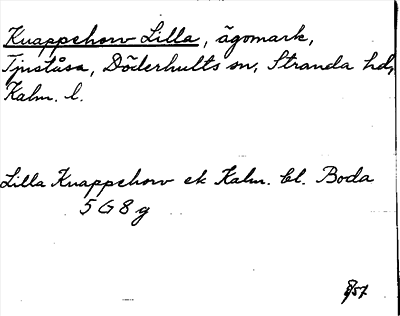 Knappehorv Lilla, ägomark,
Tjuståsa, Döderhults sn, Stranda hd,
Kalm. l.
Lilla Knappehorv ek Kalm. bl. Boda
5 G 8 g
8/57